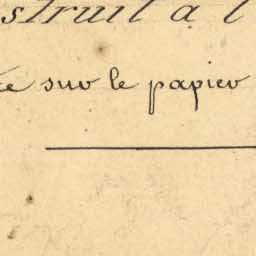 struit à l
sur le papier